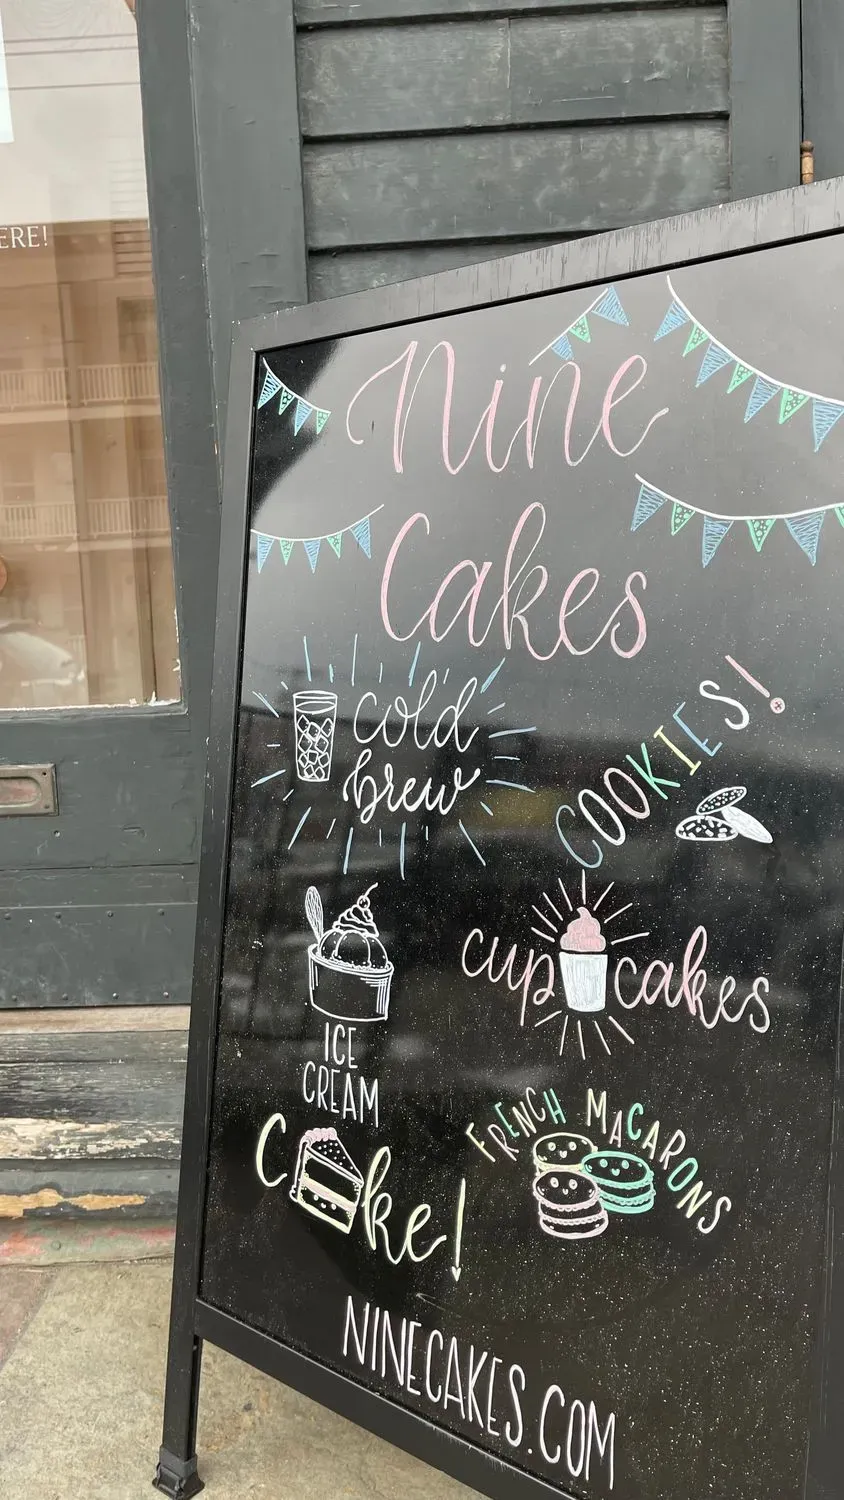 ERE!
Nine
Cakes
cold
brew
COOKIES!
ICE
CREAM
cupcakes
Cake!
FRENCH MACARONS
NINECAKES.COM